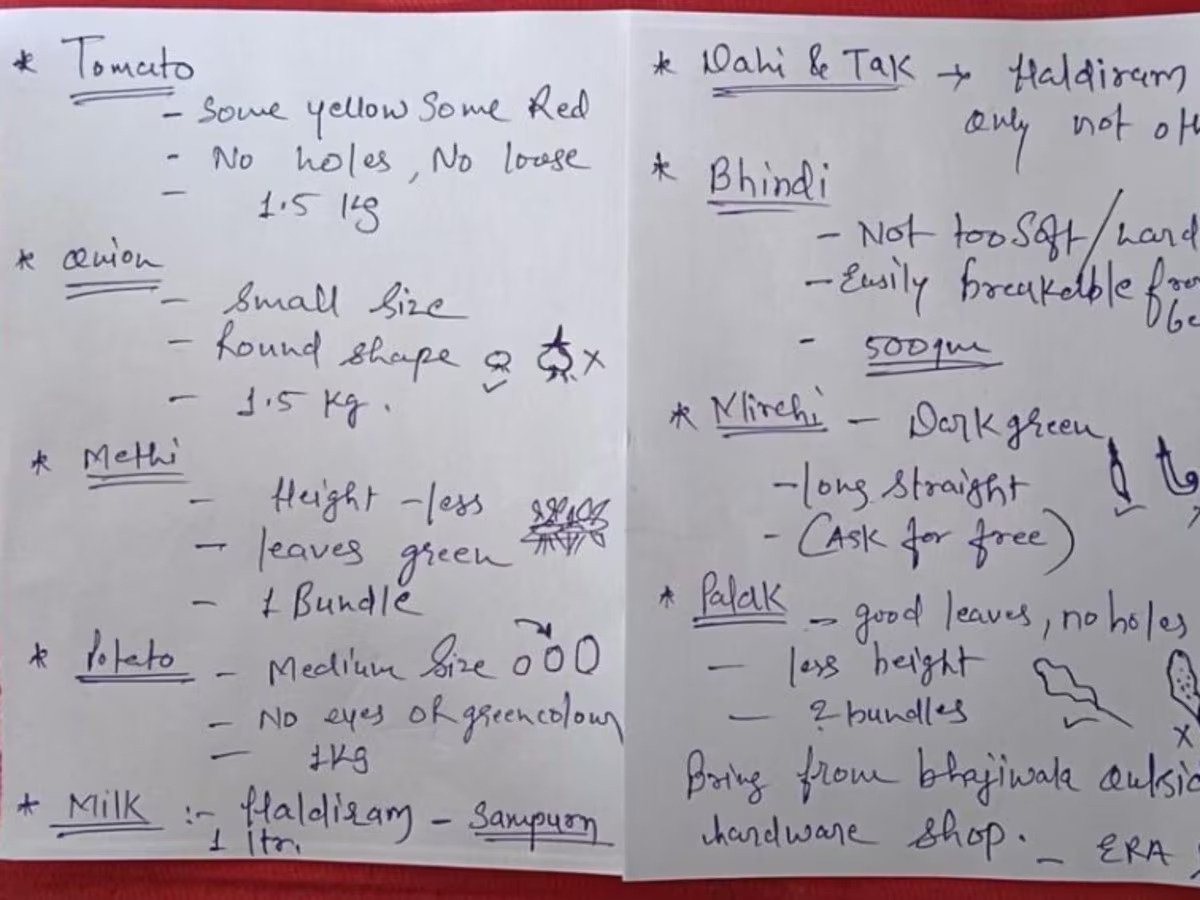 * Tomato
- Some yellow Some Red
- No holes, No loose
- 1.5 Kg
* Onion
- Small Size
- Round shape
- 1.5 Kg.
* Methi
- Height - less
- leaves green
- 1 Bundle
* Potato - Medium Size
- No eyes or green colour
- 1 Kg
* Milk :- Haldiram - Sampurn
1 ltr.
* Dahi & Tak → Haldiram
only not
* Bhindi
- Not too Soft / hard
- Easily breakable
- 500 gm
* Mirchi - Dark green
- long straight
- (Ask for free)
* Palak - good leaves, no holes
- less height
- 2 bundles
Bring from bhajiwala
hardware shop. - ERA